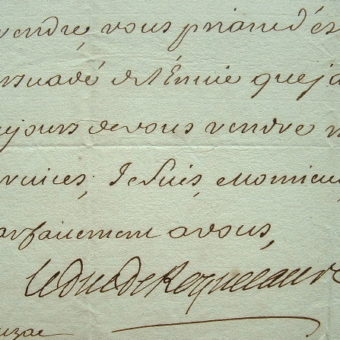 rendre, vous priant d'es
rsuadé de l'Envie que j'a
oujours de vous rendre
ervices, Je suis, Monsieu
arfaitement a vous,
le duc de Roquelaure
uzac